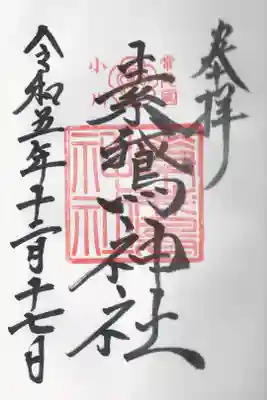 奉拝
素鵞神社
令和五年十二月十七日